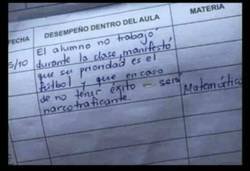 FECHA DESEMPEÑO DENTRO DEL AULA MATERIA
5/10 El alumno no trabajó
durante la clase, manifestó
que su prioridad es el
fútbol y que en caso
de no tener éxito – será
narcotraficante. Matemática